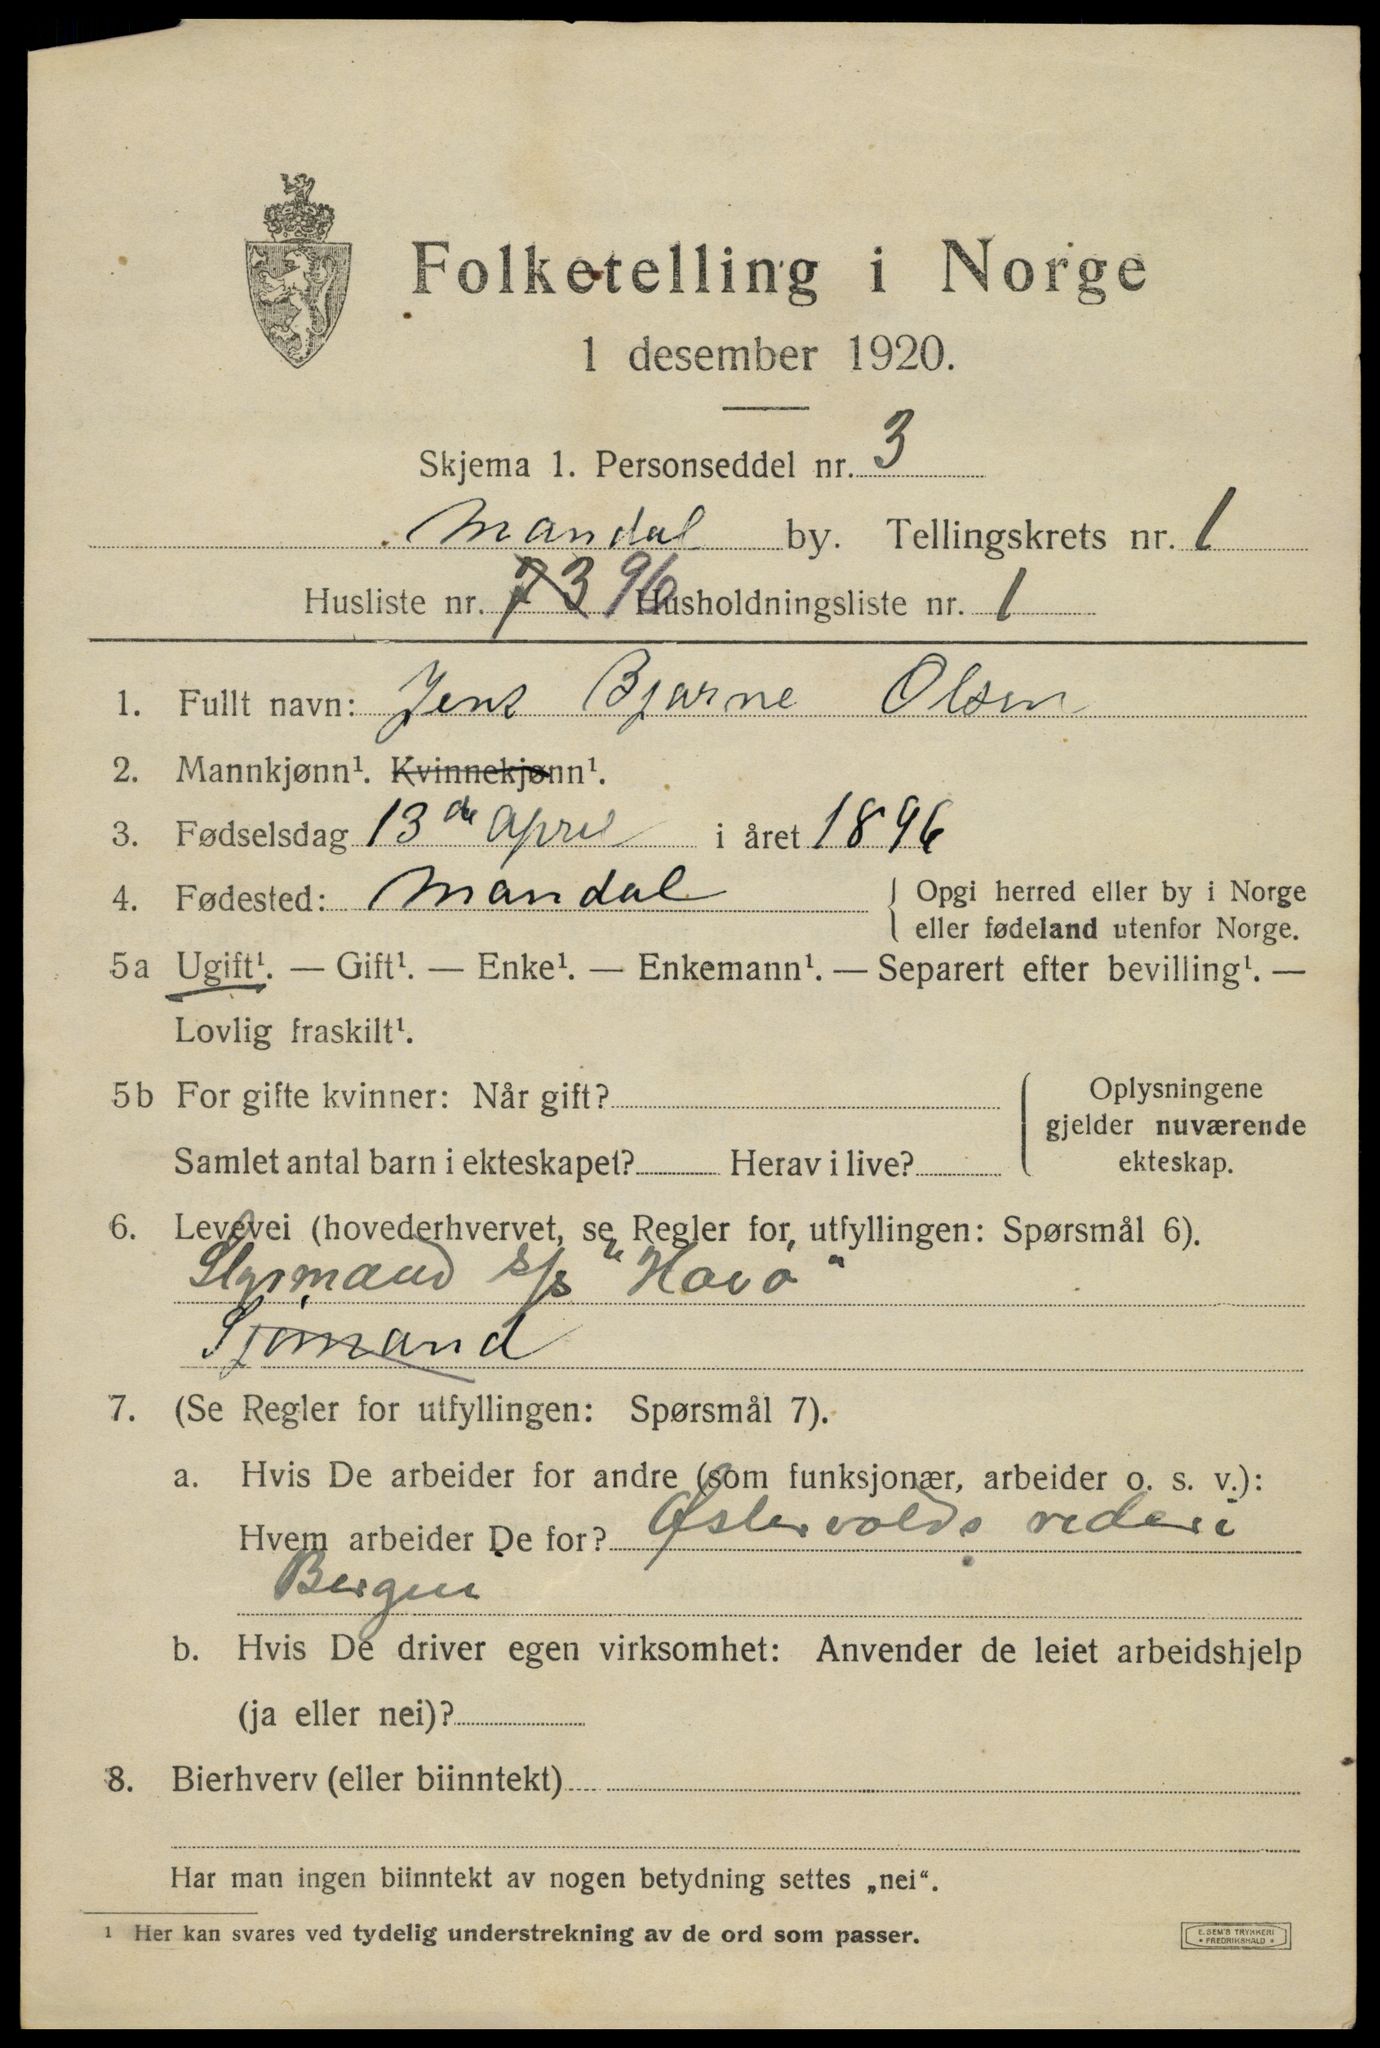 Folketelling i Norge
1 desember 1920.
Skjema 1. Personseddel nr. 3
Mandal by. Tellingskrets nr. 1
Husliste nr. 73 96 Husholdningsliste nr. 1
1. Fullt navn: Jens Bjarne Olsen
2. Mannkjønn¹. Kvinnekjønn¹.
3. Fødselsdag 13de April i året 1896
4. Fødested: Mandal { Opgi herred eller by i Norge
eller fødeland utenfor Norge.
5a Ugift¹. — Gift¹. — Enke¹. — Enkemann¹. — Separert efter bevilling¹. —
Lovlig fraskilt¹.
5b For gifte kvinner: Når gift? { Oplysningene
gjelder nuværende
Samlet antal barn i ekteskapet? Herav i live? ekteskap.
6. Levevei (hovederhvervet, se Regler for utfyllingen: Spørsmål 6).
Styrmand s/s "Havo"
Sjømand
7. (Se Regler for utfyllingen: Spørsmål 7).
a. Hvis De arbeider for andre (som funksjonær, arbeider o. s. v.):
Hvem arbeider De for? Østervolds rederi
Bergen
b. Hvis De driver egen virksomhet: Anvender de leiet arbeidshjelp
(ja eller nei)?
8. Bierhverv (eller biinntekt)
Har man ingen biinntekt av nogen betydning settes „nei“.
¹ Her kan svares ved tydelig understrekning av de ord som passer.
E. SEM'S TRYKKERI
* FREDRIKSHALD *